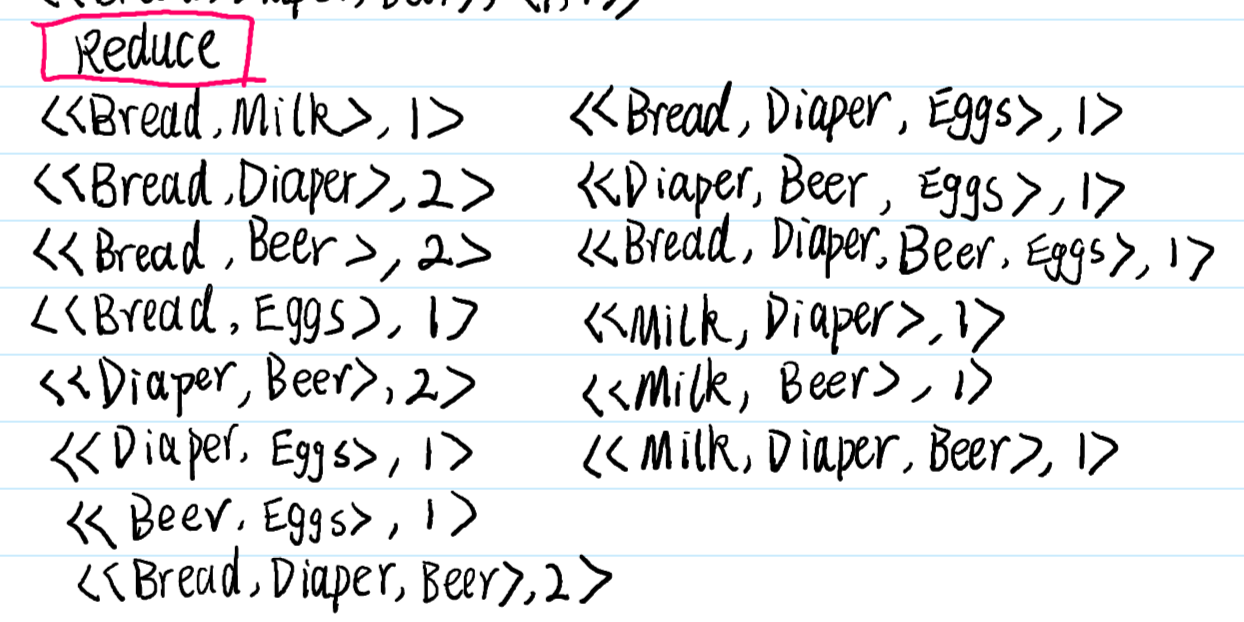 Reduce
<<Bread, Milk>, 1>
<<Bread, Diaper>, 2>
<<Bread, Beer>, 2>
<<Bread, Eggs>, 1>
<<Diaper, Beer>, 2>
<<Diaper, Eggs>, 1>
<<Beer, Eggs>, 1>
<<Bread, Diaper, Beer>, 2>
<<Bread, Diaper, Eggs>, 1>
<<Diaper, Beer, Eggs>, 1>
<<Bread, Diaper, Beer, Eggs>, 1>
<<Milk, Diaper>, 1>
<<Milk, Beer>, 1>
<<Milk, Diaper, Beer>, 1>